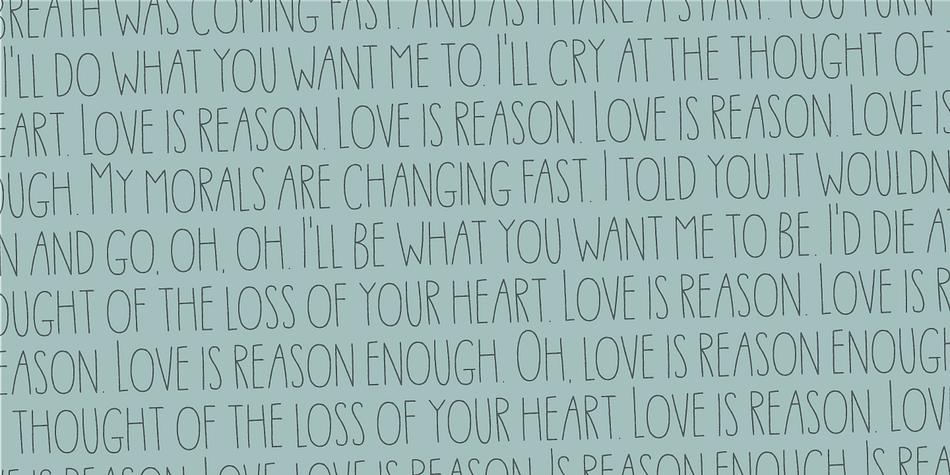 BREATH WAS COMING FAST. AND AS I MAKE A START. YOU TURN
I'LL DO WHAT YOU WANT ME TO. I'LL CRY AT THE THOUGHT OF
EART. LOVE IS REASON. LOVE IS REASON. LOVE IS REASON. LOVE IS
OUGH. MY MORALS ARE CHANGING FAST. I TOLD YOU IT WOULDN
N AND GO, OH, OH. I'LL BE WHAT YOU WANT ME TO BE. I'D DIE A
OUGHT OF THE LOSS OF YOUR HEART. LOVE IS REASON. LOVE IS R
EASON. LOVE IS REASON ENOUGH. OH, LOVE IS REASON ENOUGH
THOUGHT OF THE LOSS OF YOUR HEART. LOVE IS REASON. LOV
IS REASON. LOVE IS REASON ENOUGH. IS REA